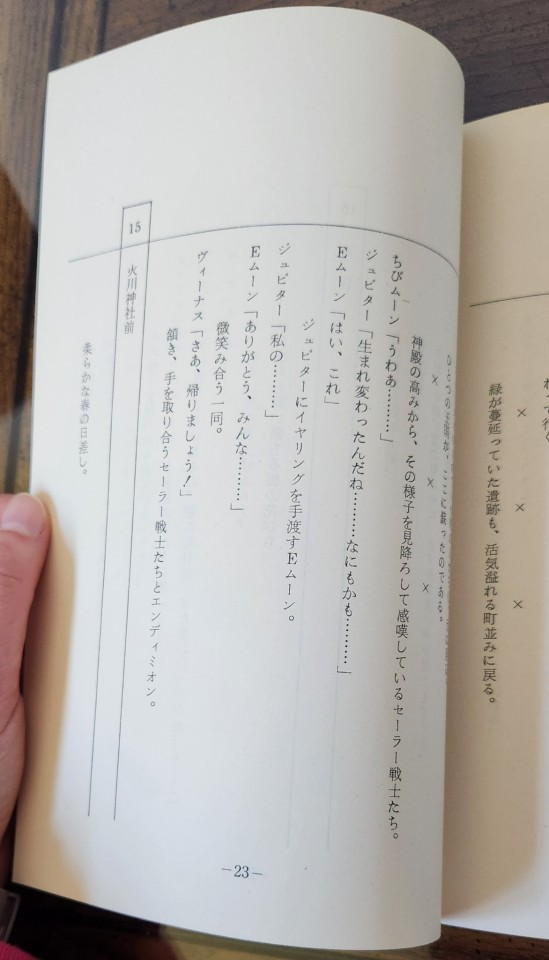 わって行く
× × ×
緑が蔓延っていた遺跡も、活気溢れる町並みに戻る。
ここに蘇ったのである。
× × ×
神殿の高みから、その様子を見降ろして感嘆しているセーラー戦士たち。
ちびムーン「うわあ………」
ジュピター「生まれ変わったんだね………なにもかも………」
Eムーン「はい、これ」
ジュピターにイヤリングを手渡すEムーン。
ジュピター「私の………」
Eムーン「ありがとう、みんな………」
微笑み合う一同。
ヴィーナス「さあ、帰りましょう！」
頷き、手を取り合うセーラー戦士たちとエンディミオン。
15 火川神社前
柔らかな春の日差し。
―23―